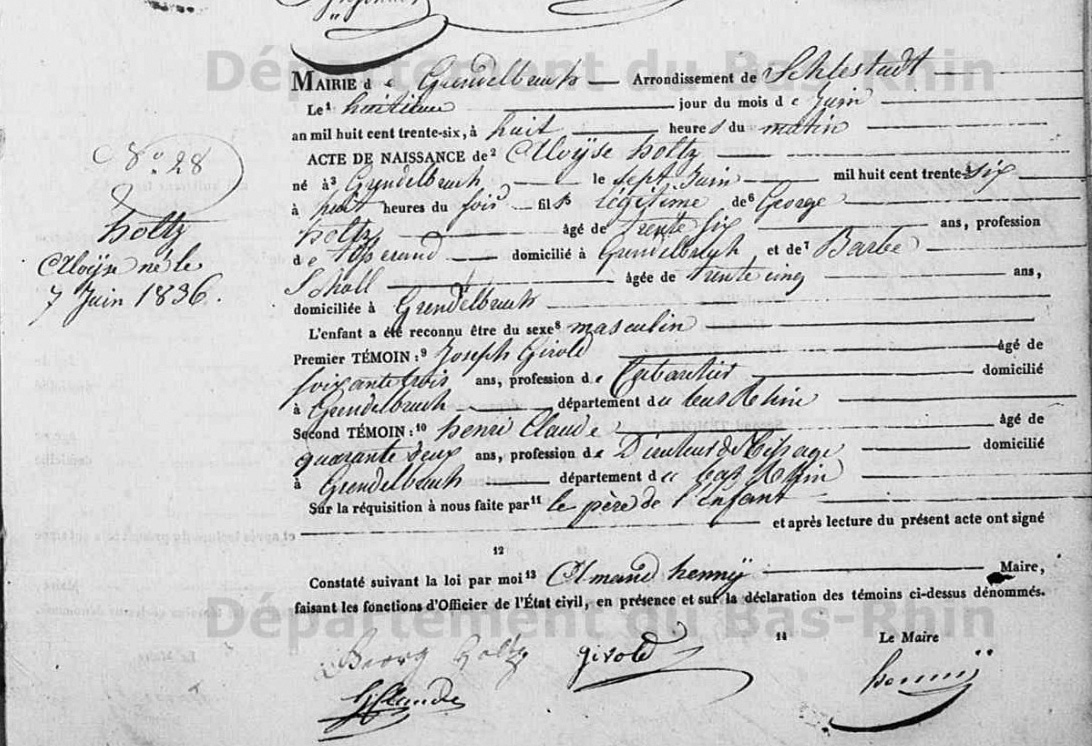 Département du Bas-Rhin
MAIRIE de Grendelbruch Arrondissement de Schlestadt
Le¹ huitième jour du mois de Juin
an mil huit cent trente-six, à huit heures du matin
ACTE DE NAISSANCE de² Aloÿse holtz
né à³ Grendelbruch le sept Juin mil huit cent trente-six
à huit heures du soir fils légitime de⁶ George
holtz âgé de trente six ans, profession
de domicilié à Grendelbruch et de⁷ Barbe
Scholl âgée de trente cinq ans,
domiciliée à Grendelbruch
L'enfant a été reconnu être du sexe⁸ masculin
Premier TÉMOIN :⁹ Joseph Girold âgé de
soixante trois ans, profession de Cabaretier domicilié
à Grendelbruch département du bas Rhin
Second TÉMOIN :¹⁰ henri Claude âgé de
quarante deux ans, profession de Directeur de Tissage domicilié
à Grendelbruch département du bas Rhin
Sur la réquisition à nous faite par¹¹ le père de l'Enfant
et après lecture du présent acte ont signé
12
Constaté suivant la loi par moi¹³ Amand hennÿ Maire,
faisant les fonctions d'Officier de l'État civil, en présence et sur la déclaration des témoins ci-dessus dénommés.
Département du Bas-Rhin
14 Le Maire
Georg Holtz girold hennÿ
HClaude
N.° 28
holtz
Aloÿse né le
7 Juin 1836.